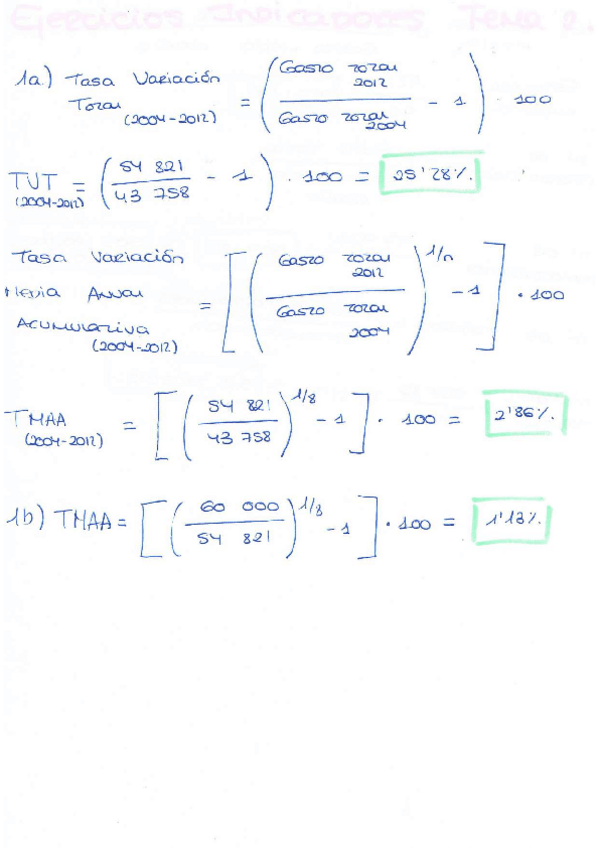 Ejercicios Indicadores Tema 2.
1a.) Tasa Variación Total (2004-2012) = (Gasto total 2012 / Gasto total 2004 - 1) · 100
TVT (2004-2012) = (54 821 / 43 758 - 1) · 100 = 25'28%.
Tasa Variación Media Anual Acumulativa (2004-2012) = [(Gasto total 2012 / Gasto total 2004)^1/n - 1] · 100
TMAA (2004-2012) = [(54 821 / 43 758)^1/8 - 1] · 100 = 2'86%.
1b) TMAA = [(60 000 / 54 821)^1/8 - 1] · 100 = 1'13%.